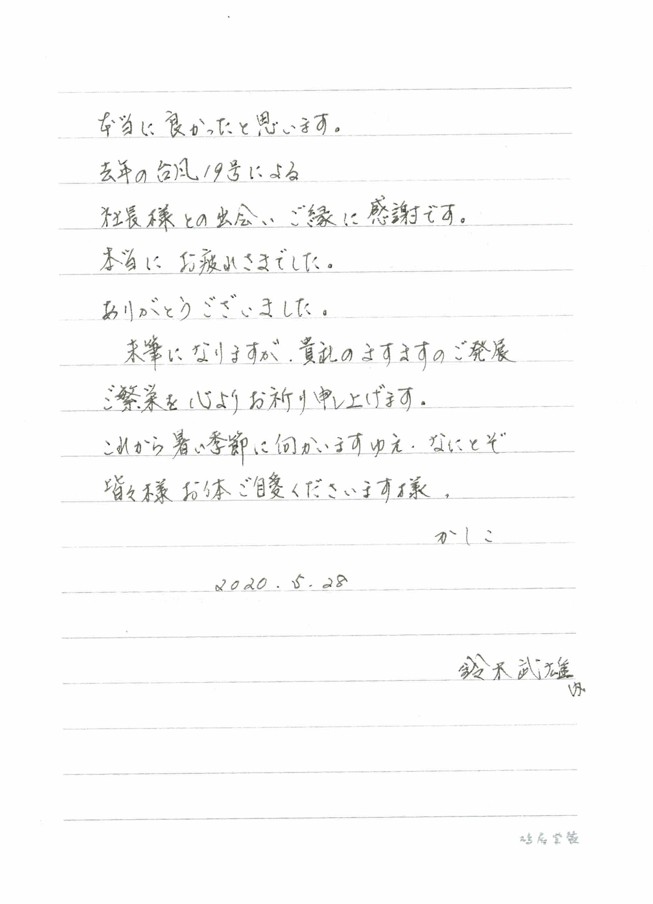 本当に良かったと思います。
去年の台風19号による
社長様との出会い ご縁に感謝です。
本当に お疲れさまでした。
ありがとうございました。
末筆になりますが、貴社のますますのご発展
ご繁栄を心よりお祈り申し上げます。
これから暑い季節に何かいますゆえ、なにとぞ
皆々様 お体ご自愛くださいます様、
かしこ
2020.5.28
鈴木武雄
内